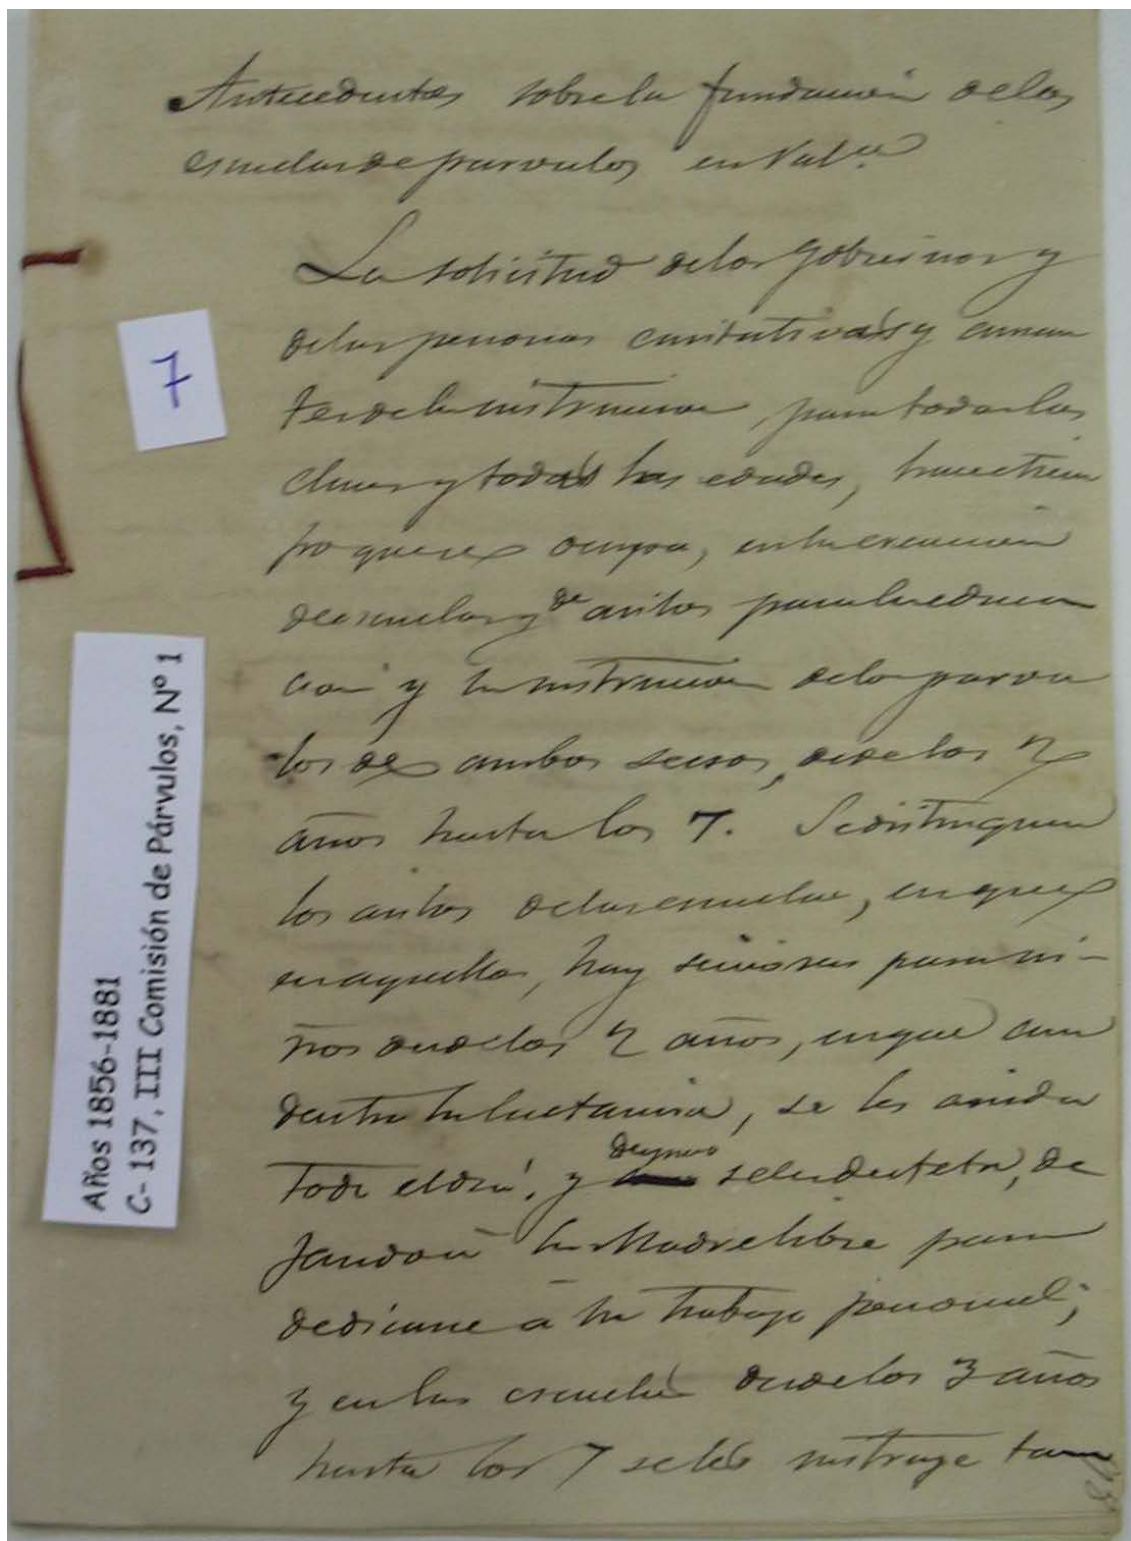 Antecedentes sobre la fundacion de las
escuelas de parvulos en Val.ª
La solicitud de los Gobiernos y
de las personas caritativas y aman
tes de la instruccion para todas las
clases y todas las edades, hace tiem
po que se ocupa, en la creacion
de escuelas y de asilos para la educa
cion y la instruccion de los parvu
los de ambos secsos, desde los 2
años hasta los 7. Se distinguen
los asilos de las escuelas, en que
en aquellos, hay secciones para ni-
ños desde los 2 años, en que aun
dentro la lactancia, se les asiste
todo el dia, y despues se les desteta, de
jando á la Madre libre para
dedicarse á su trabajo personal;
y en las escuelas desde los 3 años
hasta los 7 se les instruye tam
7
Años 1856-1881
C- 137, III Comisión de Párvulos, Nº 1